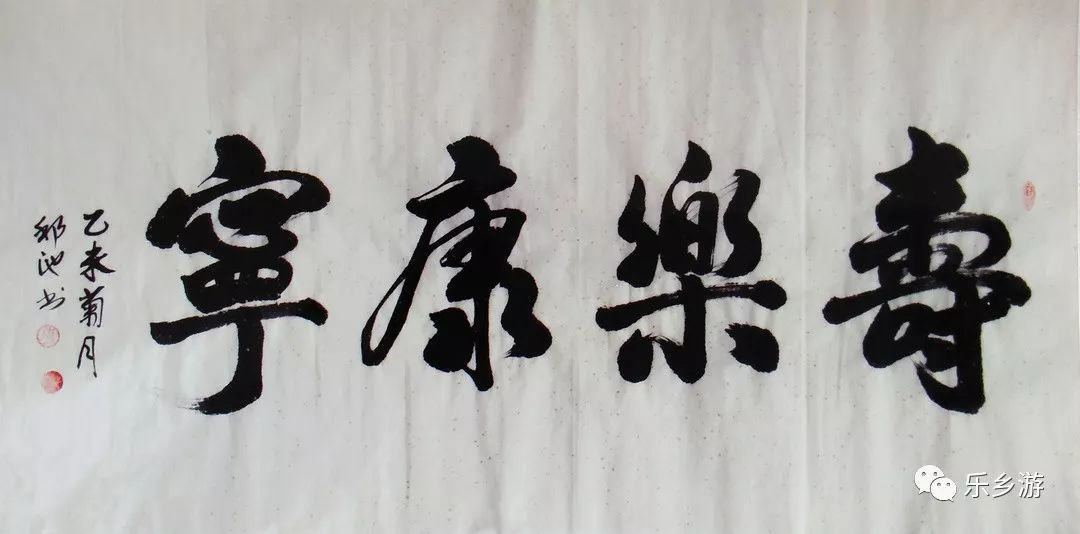 壽樂康寧
乙未菊月
书
乐乡游